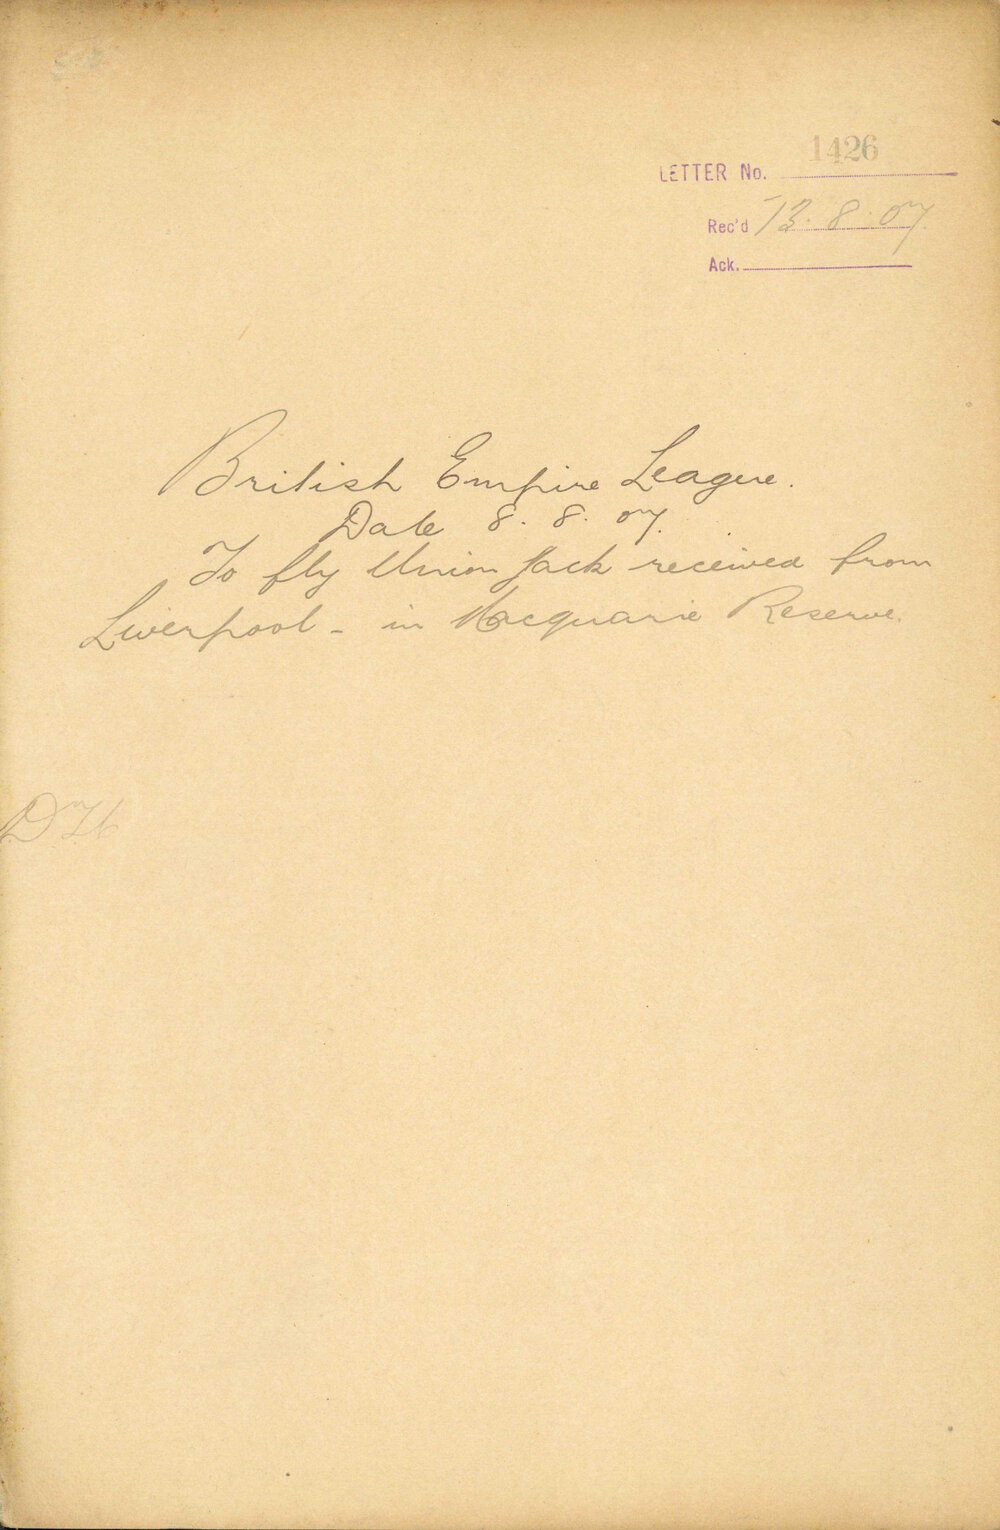 1426
LETTER No.
Rec'd 13.8.07
Ack.
British Empire League.
Date 8.8.07.
To fly Union Jack received from
Liverpool - in Macquarie Reserve.